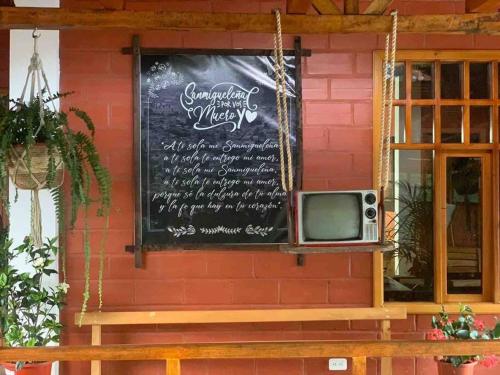 Sanmigueleña
POR VOS
Muero yo
"A tí sola mi Sanmigueleña
a tí sola te entrego mi amor,
a tí sola mi Sanmigueleña
a tí sola te entrego mi amor,
porque só la dulzura de tu canto
y la fe que hay en tu corazón".